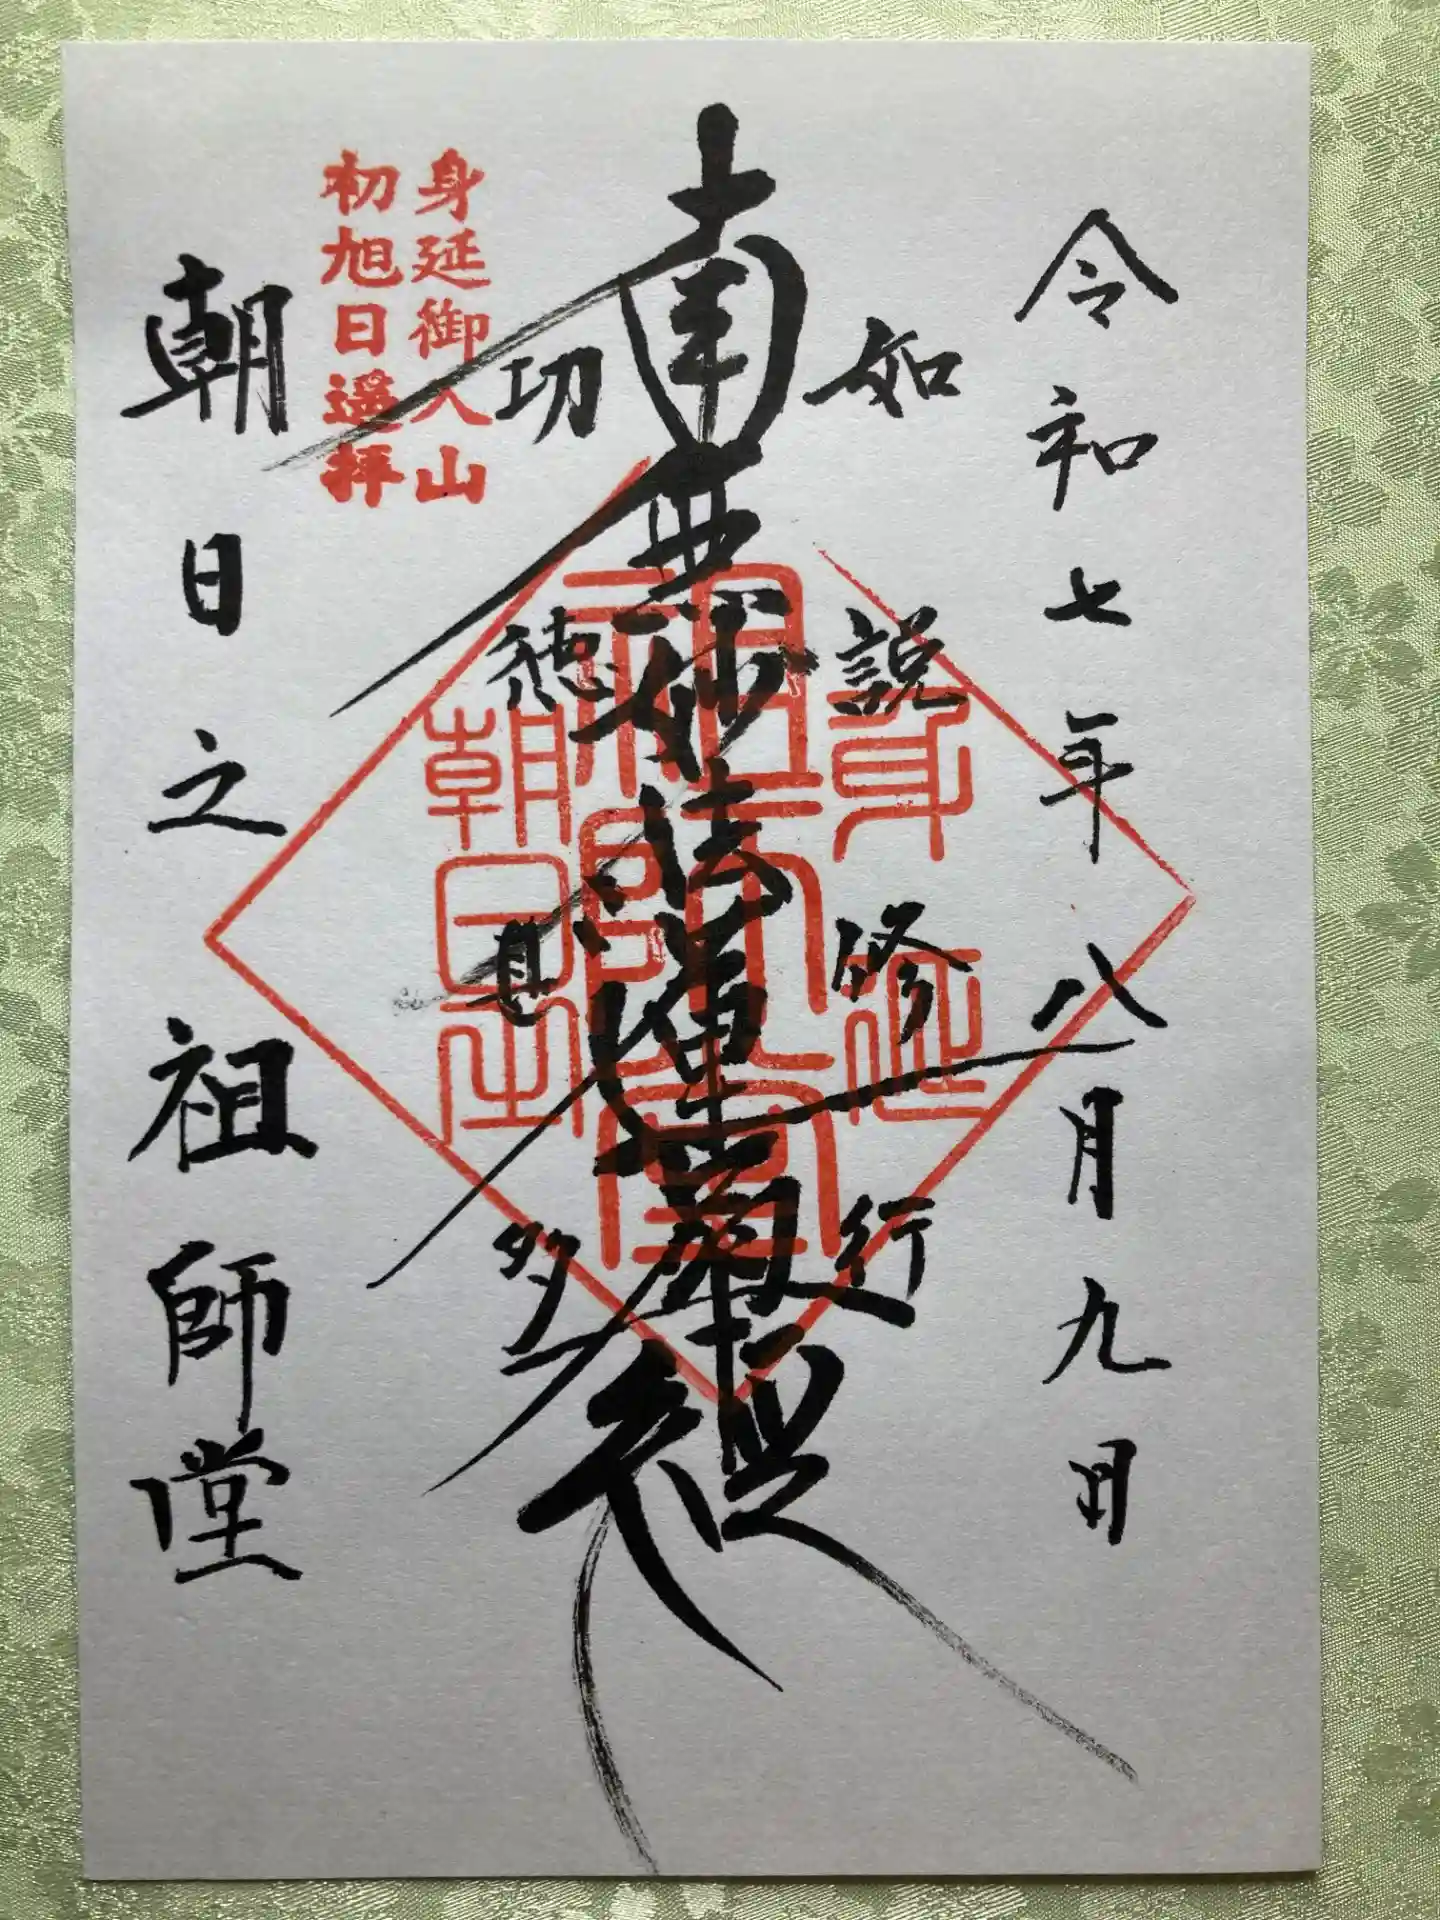 令和七年八月九日
如説修行
南無妙法蓮華経
功徳甚多
身延御入山
初旭日遥拝
朝日之祖師堂
身延
祖師堂
朝日之